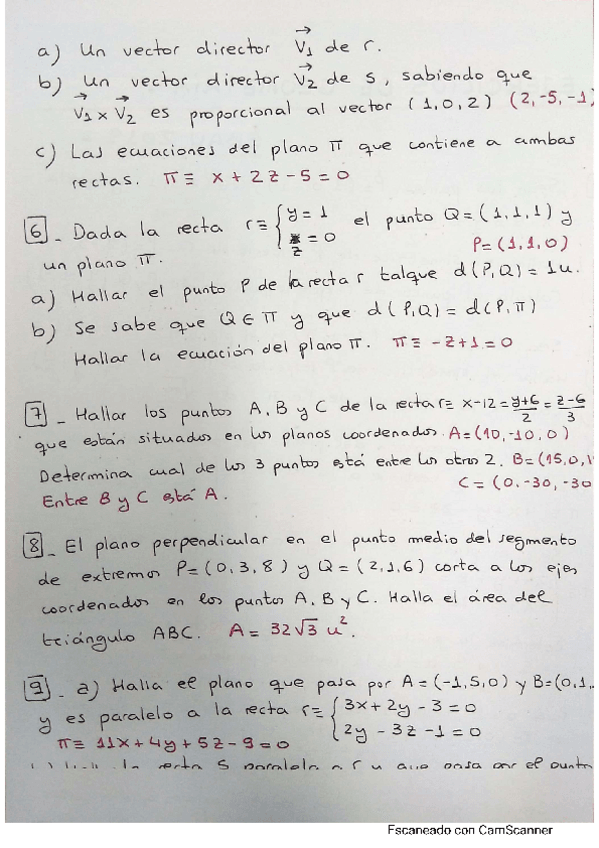 a) Un vector director V₁ de r.
b) Un vector director V₂ de s, sabiendo que
V₁ x V₂ es proporcional al vector (1,0,2) (2,-5,-1)
c) Las ecuaciones del plano π que contiene a ambas
rectas. π ≡ x + 2z - 5 = 0
6 - Dada la recta r ≡ { y = 1 z = 0 el punto Q = (1,1,1) y
un plano π. P = (1,1,0)
a) Hallar el punto P de la recta r tal que d(P,Q) = 1u.
b) Se sabe que Q ∈ π y que d(P,Q) = d(P,π)
Hallar la ecuación del plano π. π ≡ -z + 1 = 0
7 - Hallar los puntos A, B y C de la recta r ≡ x-12 = y+6/2 = z-6/3
que están situados en los planos coordenados. A = (10,-10,0)
Determina cual de los 3 puntos está entre los otros 2. B = (15,0,1
Entre B y C está A. C = (0,-30,-30
8 - El plano perpendicular en el punto medio del segmento
de extremos P = (0,3,8) y Q = (2,1,6) corta a los ejes
coordenados en los puntos A, B y C. Halla el área del
triángulo ABC. A = 32√3 u².
9 - a) Halla el plano que pasa por A = (-1,5,0) y B = (0,1,
y es paralelo a la recta r ≡ { 3x + 2y - 3 = 0
2y - 3z - 1 = 0
π ≡ 11x + 4y + 5z - 9 = 0
la recta s paralela a r y que pasa por el punto
Escaneado con CamScanner